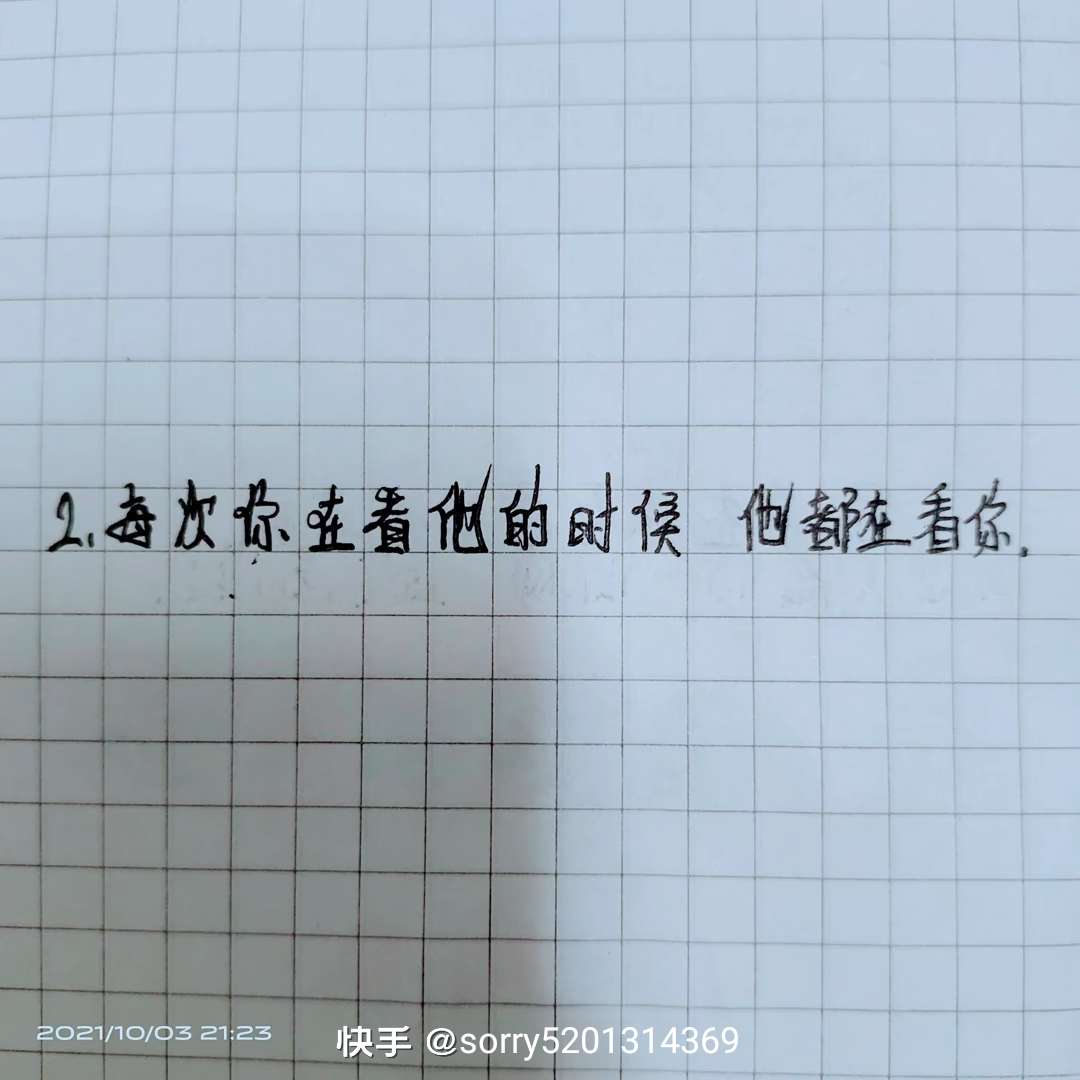 2.每次你在看他的时候 他都在看你.
2021/10/03 21:23
快手 @sorry5201314369